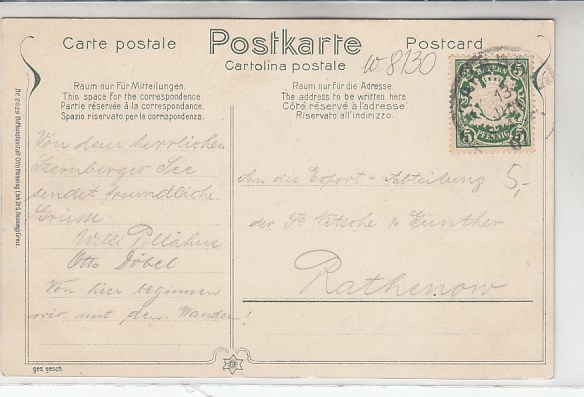 Carte postale Postkarte Postcard
Cartolina postale
w 8130
Raum nur für Mitteilungen.
This space for the correspondence.
Partie réservée à la correspondance.
Spazio riservato per la correspondenza.
Raum nur für die Adresse.
The address to be written here.
Côté réservé à l'adresse.
Riservato all'indirizzo.
BAYERN
5 5
5 5
PFENNIG
Von dem herrlichen
Starnberger See
sendet freundliche
Grüsse
Willi
Otto Döbel
Von hier beginnen
wir mit dem Wandern!
An die Export-Abteilung
der Fa Nitsche & Günther
Rathenow
5,-
ges. gesch.